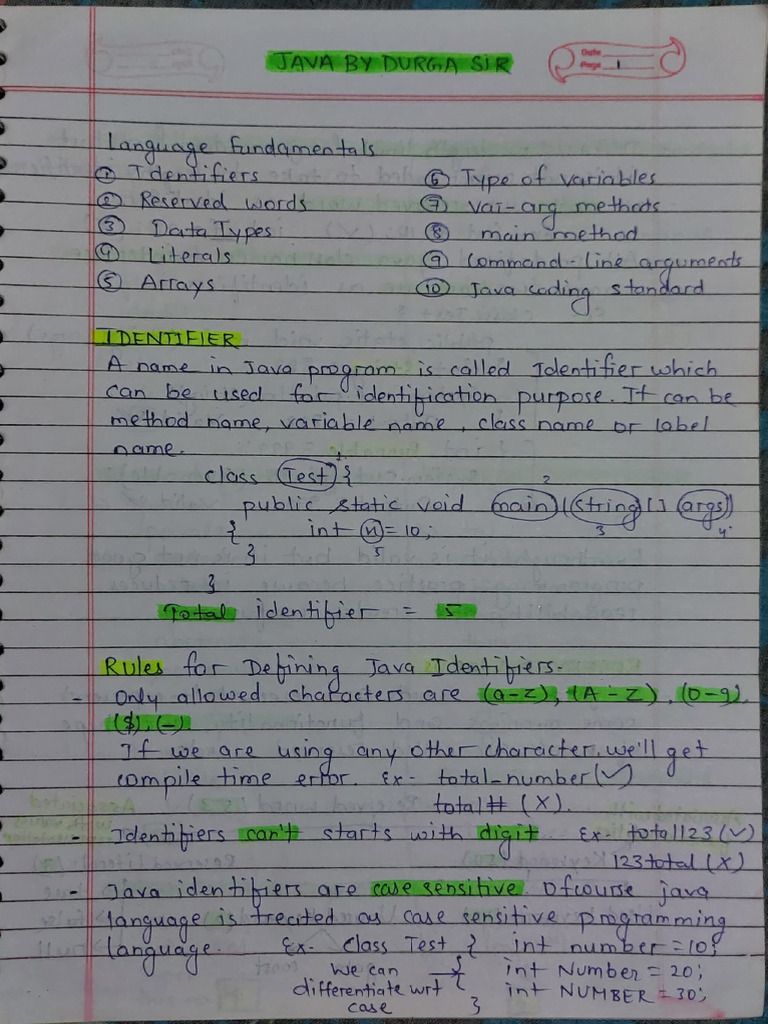 JAVA BY DURGA SIR
Date
Page 1
Language fundamentals
① Identifiers
② Reserved words
③ Data Types
④ Literals
⑤ Arrays
⑥ Type of variables
⑦ var-arg methods
⑧ main method
⑨ command-line arguments
⑩ Java coding standard
IDENTIFIER
A name in Java program is called Identifier which
can be used for identification purpose. It can be
method name, variable name, class name or label
name.
class Test { 1
public static void main (string [] args) 2 3 4
{ int x = 10; 5
}
}
Total identifier = 5
Rules for Defining Java Identifiers.
- Only allowed characters are (a-z), (A-Z), (0-9),
($), (_)
If we are using any other character, we'll get
compile time error. Ex- total_number (✓)
total# (X).
- Identifiers can't starts with digit Ex- total123 (✓)
123total (X)
- Java identifiers are case sensitive. Ofcourse java
language is treated as case sensitive programming
language. Ex- Class Test { int number = 10;
we can → { int Number = 20;
differentiate wrt int NUMBER = 30;
case }